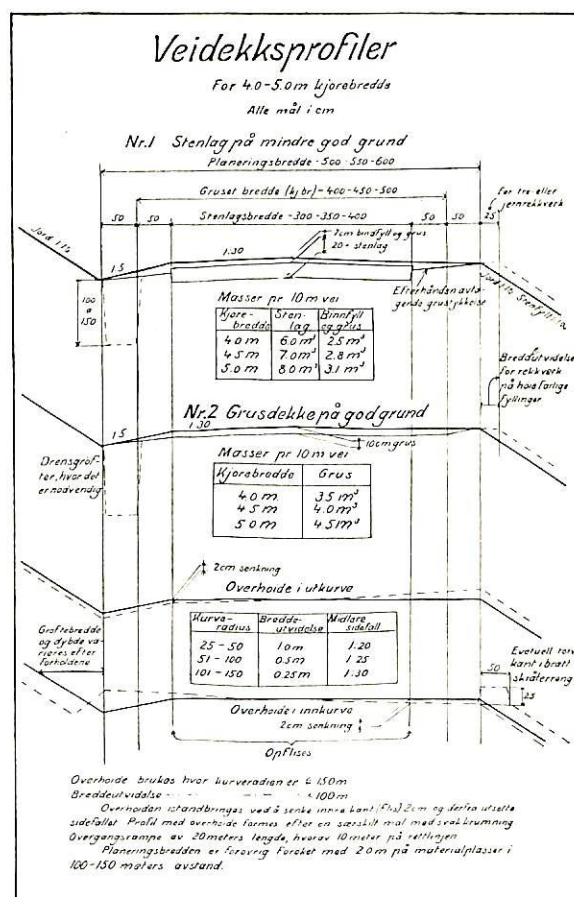 Veidekksprofiler
For 4.0-5.0m kjørebredde
Alle mål i cm
Nr.1 Stenlag på mindre god grund
Planeringsbredde - 500 - 550 - 600
Gruset bredde (kj br) - 400 - 450 - 500
For tre- eller jernrekkverk
50 50 Stenlagsbredde - 300 - 350 - 400 50 50 25
Jord 1:1½
1:5
1:30
7cm bindfyll og grus
20 - stenlag
100 à 150
Efterhånden avtagende grustykkelse
Jord 1:1½
Masser pr 10m vei
Kjørebredde Stenlag Binnfyll og grus
4.0 m 6.0 m³ 2.5 m³
4.5 m 7.0 m³ 2.8 m³
5.0 m 8.0 m³ 3.1 m³
Breddeutvidelse for rekkverk på høie farlige fyllinger
Nr.2 Grusdekke på god grund
1:5
1:30
10cm grus
Drensgrøfter, hvor det er nødvendig
Masser pr 10m vei
Kjørebredde Grus
4.0 m 3.5 m³
4.5 m 4.0 m³
5.0 m 4.5 m³
2cm senkning
Overhøide i utkurve
Grøftebredde og dybde varieres efter forholdene
Kurveradius Breddeutvidelse Midlere sidefall
25 - 50 1.0m 1:20
51 - 100 0.5m 1:25
101 - 150 0.25m 1:30
Eventuell torvkant i bratt skråterreng
50
25
Overhøide i innkurve
2cm senkning
Opflises
Overhøide brukes hvor kurveradien er ≤ 150m
Breddeutvidelse - - - - - ≤ 100m
Overhøiden istandbringes ved å senke indre kant (flis) 2cm og derfra utsette
sidefallet. Profil med overhøide formes efter en særskilt mal med svak krumning
Overgangsrampe av 20 meters lengde, hvorav 10 meter på rettlinjen
Planeringsbredden er forøvrig forøket med 2.0m på materialplasser i
100-150 meters avstand.